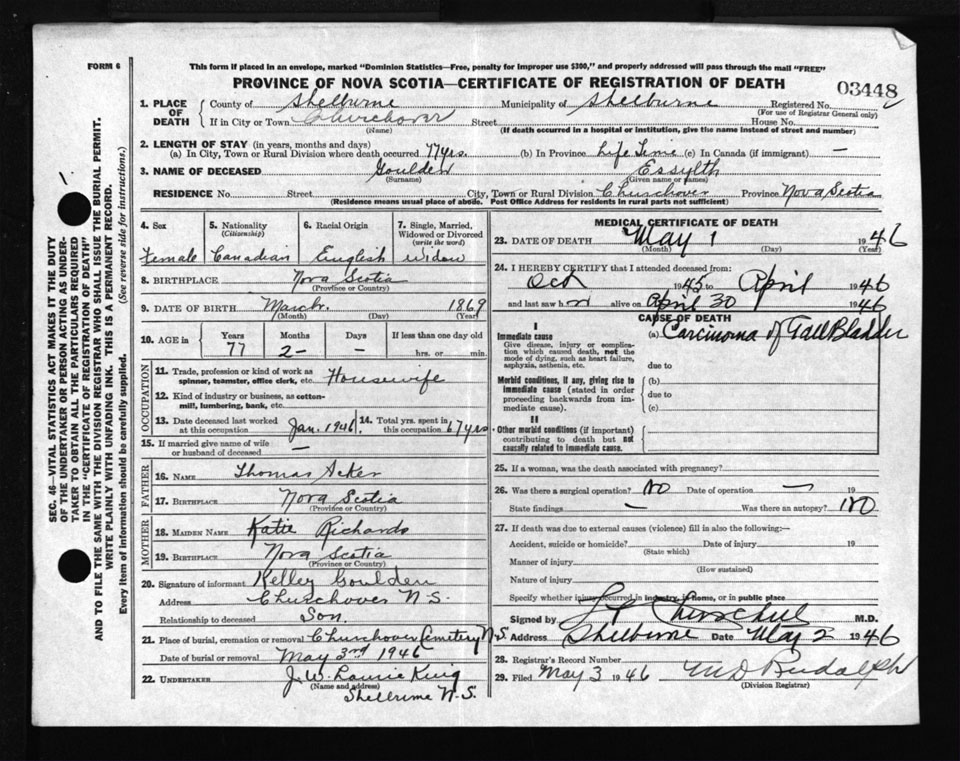 FORM 6
This form if placed in an envelope, marked "Dominion Statistics—Free, penalty for improper use $300," and properly addressed will pass through the mail "FREE"
PROVINCE OF NOVA SCOTIA—CERTIFICATE OF REGISTRATION OF DEATH
03448
1. PLACE OF DEATH { County of Shelburne Municipality of Shelburne Registered No.
(For use of Registrar General only)
If in City or Town Churchover Street House No.
(Name) (If death occurred in a hospital or institution, give the name instead of street and number)
2. LENGTH OF STAY (in years, months and days)
(a) In City, Town or Rural Division where death occurred 77 yrs. (b) In Province Life Time (c) In Canada (if immigrant) —
3. NAME OF DECEASED Goulden Essylth
(Surname) (Given name or names)
RESIDENCE No. Street City, Town or Rural Division Churchover Province Nova Scotia
(Residence means usual place of abode. Post Office Address for residents in rural parts not sufficient)
4. Sex Female
5. Nationality (Citizenship) Canadian
6. Racial Origin English
7. Single, Married, Widowed or Divorced (write the word) Widow
8. BIRTHPLACE Nova Scotia
(Province or Country)
9. DATE OF BIRTH March 1869
(Month) (Day) (Year)
10. AGE in Years 77 Months 2 Days — If less than one day old hrs. or min.
OCCUPATION
11. Trade, profession or kind of work as spinner, teamster, office clerk, etc. Housewife
12. Kind of industry or business, as cotton-mill, lumbering, bank, etc.
13. Date deceased last worked at this occupation Jan. 1946
14. Total yrs. spent in this occupation 67 yrs.
15. If married give name of wife or husband of deceased —
FATHER
16. NAME Thomas Acker
17. BIRTHPLACE Nova Scotia
(Province or Country)
MOTHER
18. MAIDEN NAME Katie Richards
19. BIRTHPLACE Nova Scotia
(Province or Country)
20. Signature of informant Kelley Goulden
Address Churchover N.S.
Relationship to deceased Son.
21. Place of burial, cremation or removal Churchover Cemetery N.S.
Date of burial or removal May 3rd 1946
22. UNDERTAKER J. W. Laurie King
(Name and address)
Shelburne N.S.
MEDICAL CERTIFICATE OF DEATH
23. DATE OF DEATH May 1 1946
(Month) (Day) (Year)
24. I HEREBY CERTIFY that I attended deceased from:
Oct 1945 to April 1946
and last saw h er alive on April 30 1946
CAUSE OF DEATH
I
Immediate cause
Give disease, injury or complication which caused death, not the mode of dying, such as heart failure, asphyxia, asthenia, etc.
(a) Carcinoma of Gall Bladder
due to
Morbid conditions, if any, giving rise to immediate cause (stated in order proceeding backwards from immediate cause).
(b)
due to
(c)
II
Other morbid conditions (if important) contributing to death but not causally related to immediate cause.
25. If a woman, was the death associated with pregnancy?
26. Was there a surgical operation? No Date of operation — 19
State findings — Was there an autopsy? No
27. If death was due to external causes (violence) fill in also the following:—
Accident, suicide or homicide? Date of injury 19
(State which)
Manner of injury
(How sustained)
Nature of injury
Specify whether injury occurred in industry, in home, or in public place
Signed by Churchill M.D.
Address Shelburne Date May 2 1946
28. Registrar's Record Number
29. Filed May 3 1946 M D Rudolph
(Division Registrar)
SEC. 46—VITAL STATISTICS ACT MAKES IT THE DUTY
OF THE UNDERTAKER OR PERSON ACTING AS UNDER-
TAKER TO OBTAIN ALL THE PARTICULARS REQUIRED
IN THE "CERTIFICATE OF REGISTRATION OF DEATH"
AND TO FILE THE SAME WITH THE DIVISION REGISTRAR WHO SHALL ISSUE THE BURIAL PERMIT.
WRITE PLAINLY WITH UNFADING INK. THIS IS A PERMANENT RECORD.
Every item of information should be carefully supplied. (See reverse side for instructions.)